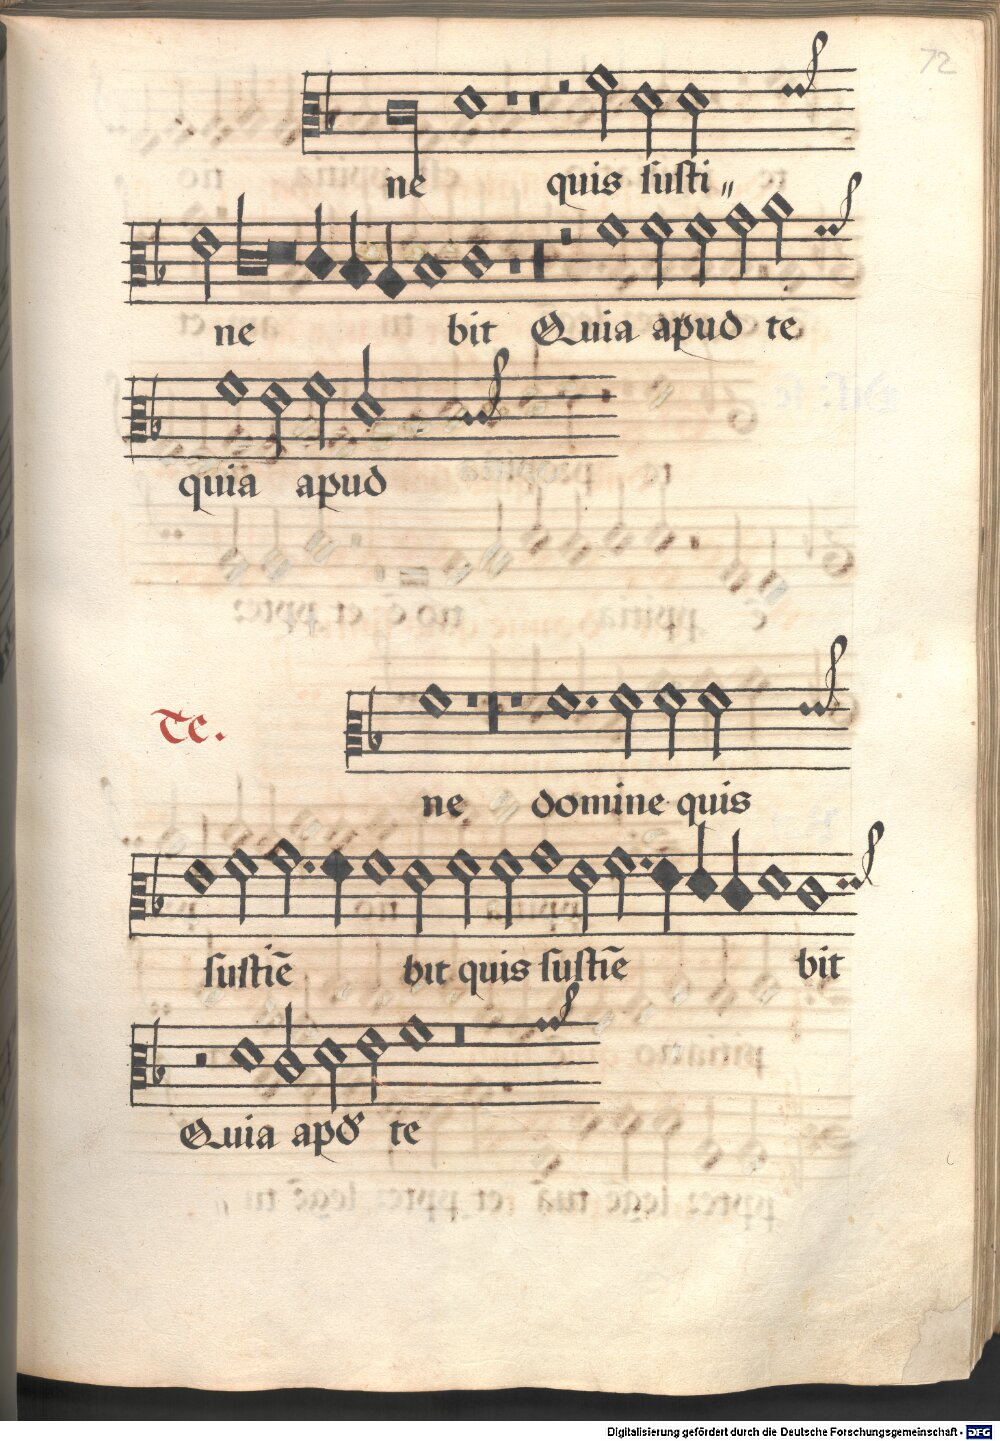 72
ne quis susti〃
ne bit Quia apud te
quia apud
Te.
ne domine quis
sustiē bit quis sustiē bit
Quia apd' te
Digitalisierung gefördert durch die Deutsche Forschungsgemeinschaft - DFG